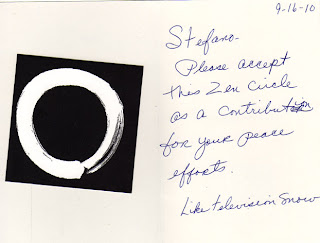 9-16-10
Stefano-
Please accept
this Zen Circle
as a contribution
for your peace
efforts.
Like television snow